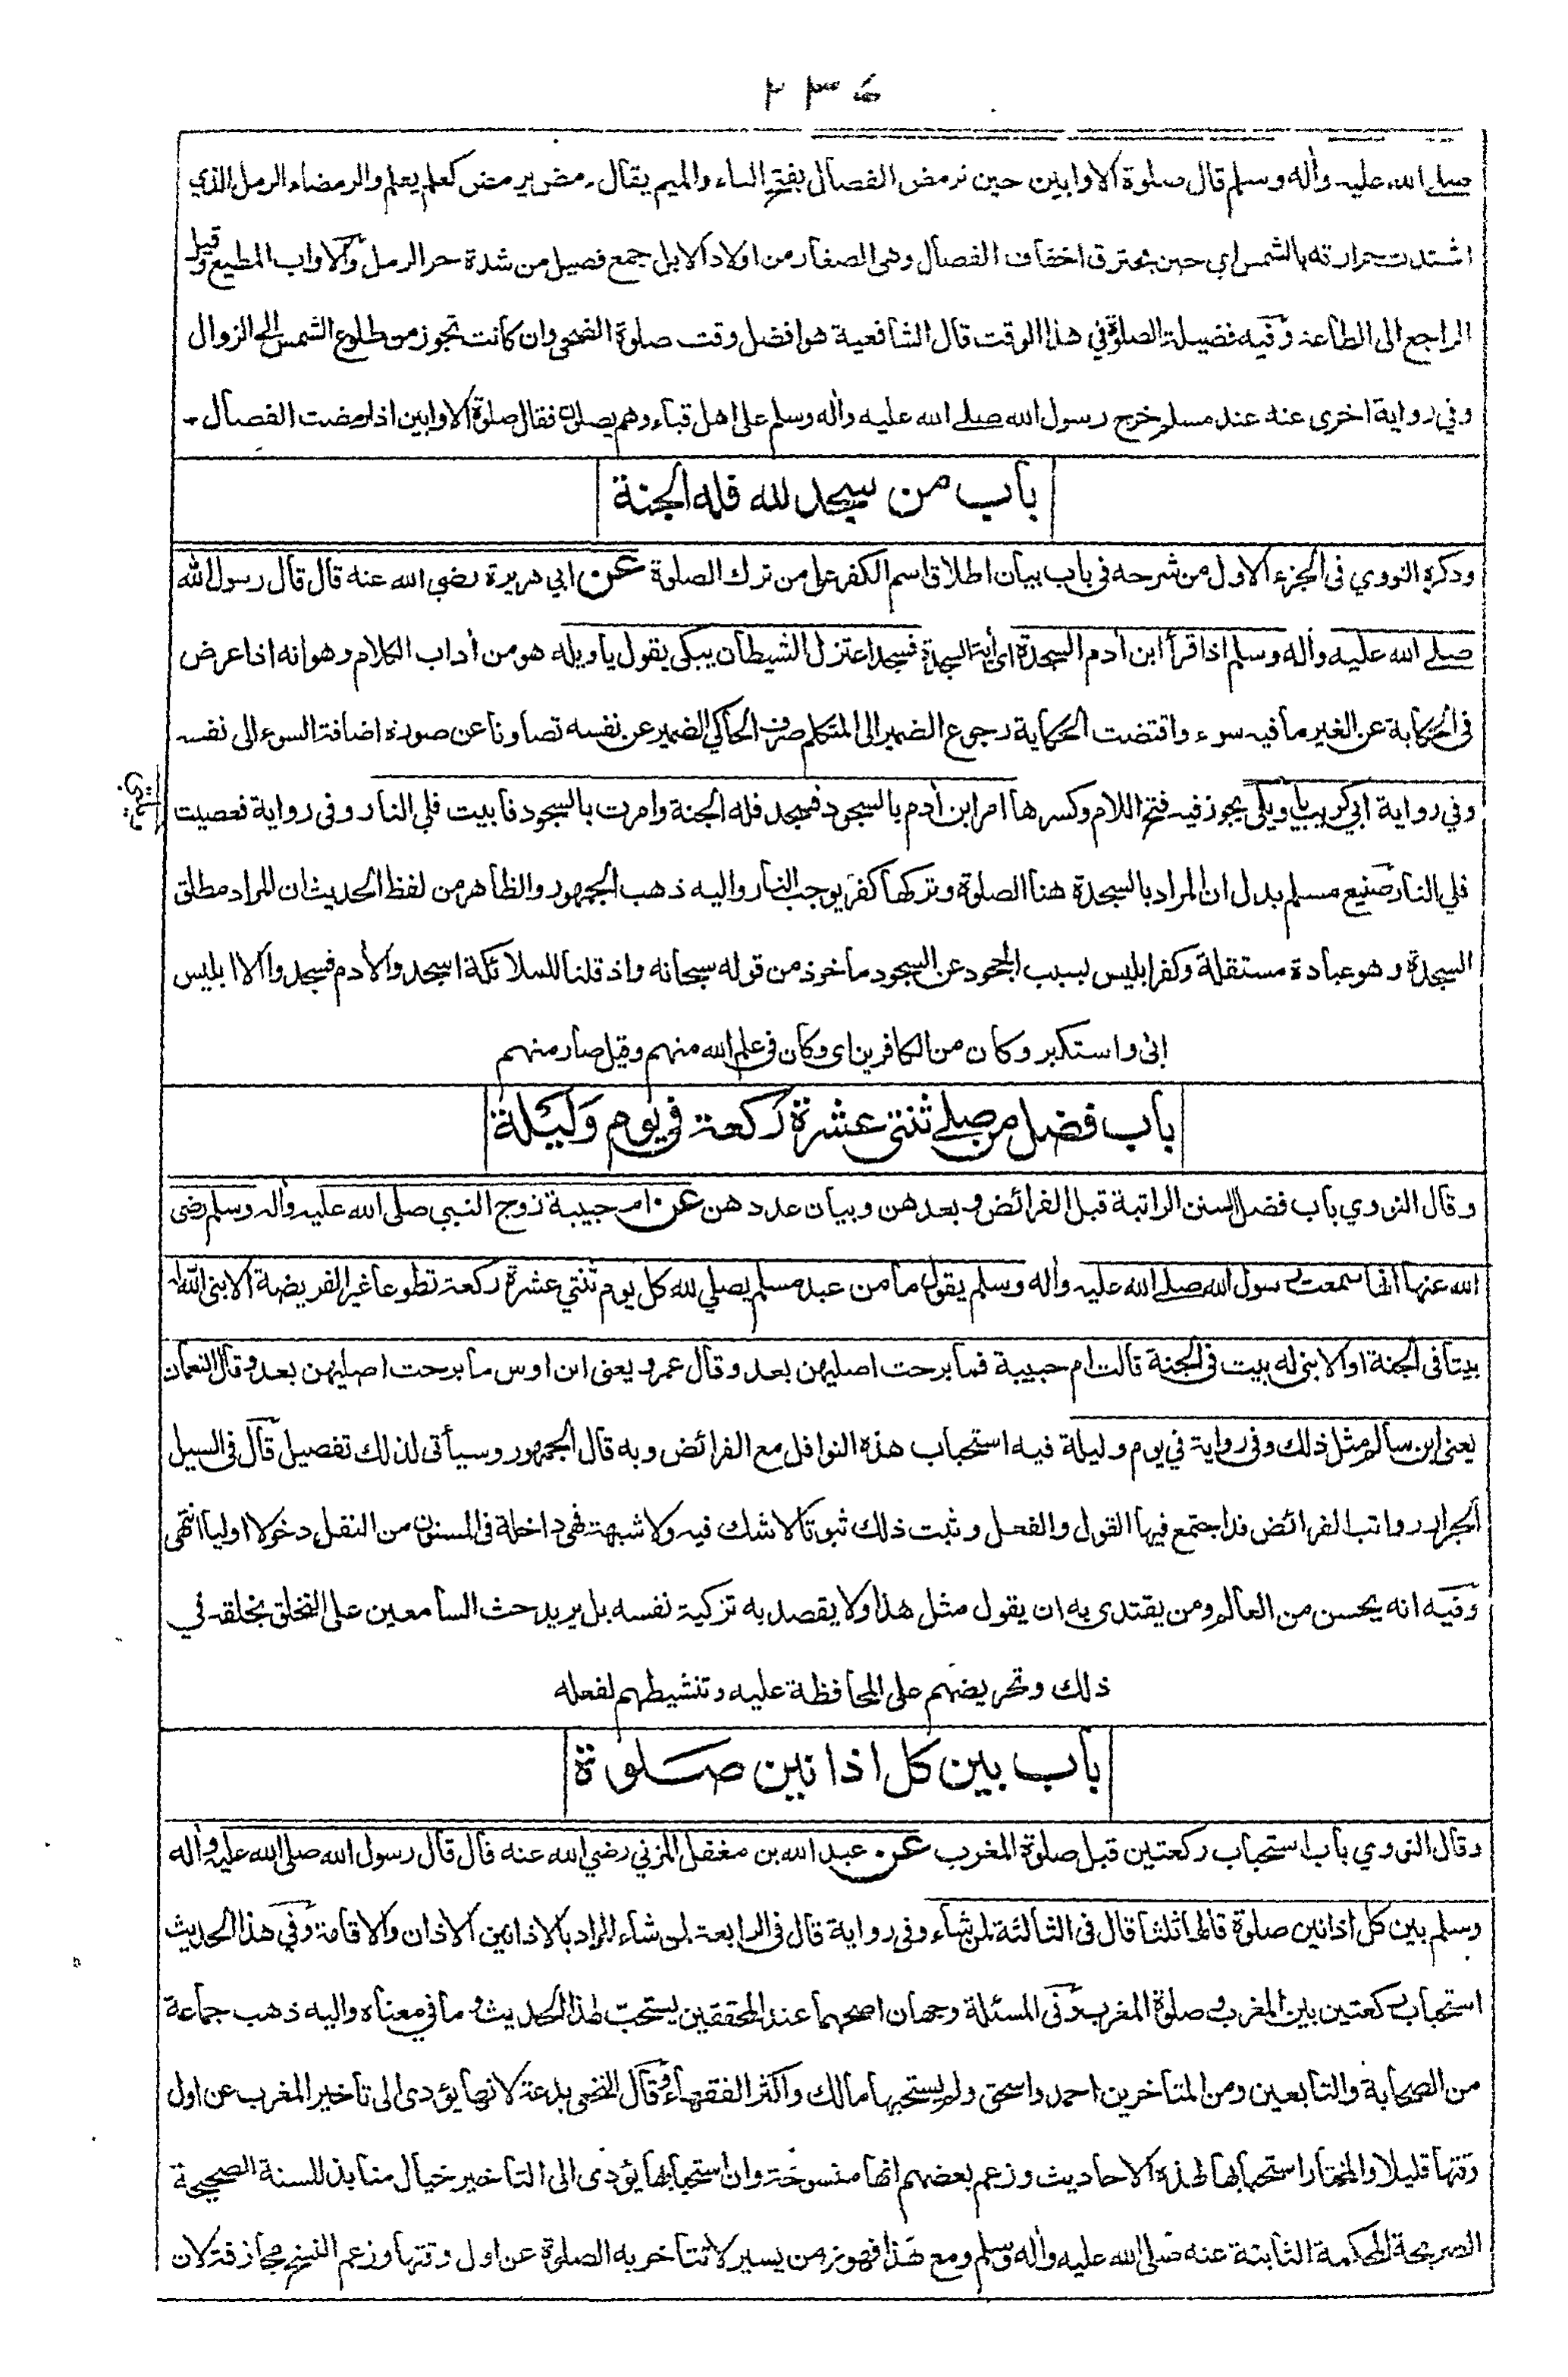 ٢٣٤
صلے الله عليه وأله وسلم قال صلوة الاوابين حين ترمض الفصال بفتح التاء والميم يقال رمض يرمض كعلم يعلم والرمضاء الرمل الذي
اشتدت حرارته بالشمس اي حين يحترق اخفاف الفصال وهى الصغار من اولاد الابل جمع فصيل من شدة حر الرمل والاواب المطيع وقيل
الراجع الى الطاعة وفيه فضيلة الصلوة في هذا الوقت قال الشافعية هو افضل وقت صلوة الضحى وان كانت تجوز من طلوع الشمس الى الزوال
وفي رواية اخرى عنه عند مسلم خرج رسول الله صلے الله عليه وأله وسلم على اهل قباء وهم يصلون فقال صلوة الاوابين اذا رمضت الفصال -
باب من سجد لله فله الجنة
وذكره النووي فى الجزء الاول من شرحه فى باب بيان اطلاق اسم الكفر على من ترك الصلوة عن ابي هريرة رضي الله عنه قال قال رسول الله
صلے الله عليه وأله وسلم اذا قرأ ابن أدم السجدة اى أية السجدة فسجد اعتزل الشيطان يبكى يقول يا ويله هو من أداب الكلام وهو انه اذا عرض
فى الحكاية عن الغير ما فيه سوء واقتضت الحكاية رجوع الضمير الى المتكلم صرف الحاكي الضمير عن نفسه تصاونا عن صورة اضافة السوء الى نفسه
وفي رواية ابي كريب يا ويلى يجوز فيه فتح اللام وكسرها امر ابن أدم بالسجود فسجد فله الجنة وامرت بالسجود فابيت فلي النار وفى رواية فعصيت
فلي النار صنيع مسلم يدل ان المراد بالسجدة هنا الصلوة وتركها كفر يوجب النار واليه ذهب الجمهور والظاهر من لفظ الحديث ان المراد مطلق
السجدة وهو عبادة مستقلة وكفر ابليس بسبب الجحود عن السجود ماخوذ من قوله سبحانه واذ قلنا للملائكة اسجدوا لأدم فسجدوا الا ابليس
ابى واستكبر وكان من الكافرين اى وكان فى علم الله منهم وقيل صار منهم
باب فضل من صلے ثنتى عشرة ركعة فى يوم وليلة
وقال النووي باب فضل السنن الراتبة قبل الفرائض وبعدهن وبيان عددهن عن ام حبيبة زوج النبي صلى الله عليه وأله وسلم رضى
الله عنها انها سمعت رسول الله صلے الله عليه وأله وسلم يقول ما من عبد مسلم يصلي لله كل يوم ثنتي عشرة ركعة تطوعا غير الفريضة الا بنى الله له
بيتا فى الجنة او الا بنى له بيت فى الجنة قالت ام حبيبة فما برحت اصليهن بعد وقال عمرو يعنى ابن اوس ما برحت اصليهن بعد وقال النعمان
يعنى ابن سالم مثل ذلك وفى رواية في يوم وليلة فيه استحباب هذه النوافل مع الفرائض وبه قال الجمهور وسيأتى لذلك تفصيل قال فى السيل
الجرار رواتب الفرائض قد اجتمع فيها القول والفعل وثبت ذلك ثبوتا لا شك فيه ولا شبهة فهى داخلة فى المسنون من النفل دخولا اوليا انتهى
وفيه انه يحسن من العالم ومن يقتدى به ان يقول مثل هذا ولا يقصد به تزكية نفسه بل يريد حث السامعين على التخلق بخلقه في
ذلك وتحريضهم على المحافظة عليه وتنشيطهم لفعله
باب بين كل اذانين صلوة
وقال النووي باب استحباب ركعتين قبل صلوة المغرب عن عبد الله بن مغفل المزني رضي الله عنه قال قال رسول الله صلى الله عليه وأله
وسلم بين كل اذانين صلوة قالها ثلثا قال فى الثالثة لمن شاء وفى رواية قال فى الرابعة لمن شاء المراد بالاذانين الاذان والاقامة وفي هذا الحديث
استحباب ركعتين بين المغرب و صلوة المغرب وفى المسئلة وجهان اصحهما عند المحققين يستحب لهذا الحديث وما في معناه واليه ذهب جماعة
من الصحابة والتابعين ومن المتاخرين احمد واسحق ولم يستحبها مالك واكثر الفقهاء وقال النخعى بدعة لانها يؤدى الى تاخير المغرب عن اول
وقتها قليلا والمختار استحبابها لهذه الاحاديث وزعم بعضهم انها منسوخة وان استحبابها يؤدى الى التاخير خيال منابذ للسنة الصحيحة
الصريحة المحكمة الثابتة عنه صلى الله عليه وأله وسلم ومع هذا فهو زمن يسير لا تتاخر به الصلوة عن اول وقتها وزعم النسخ مجازفة لان